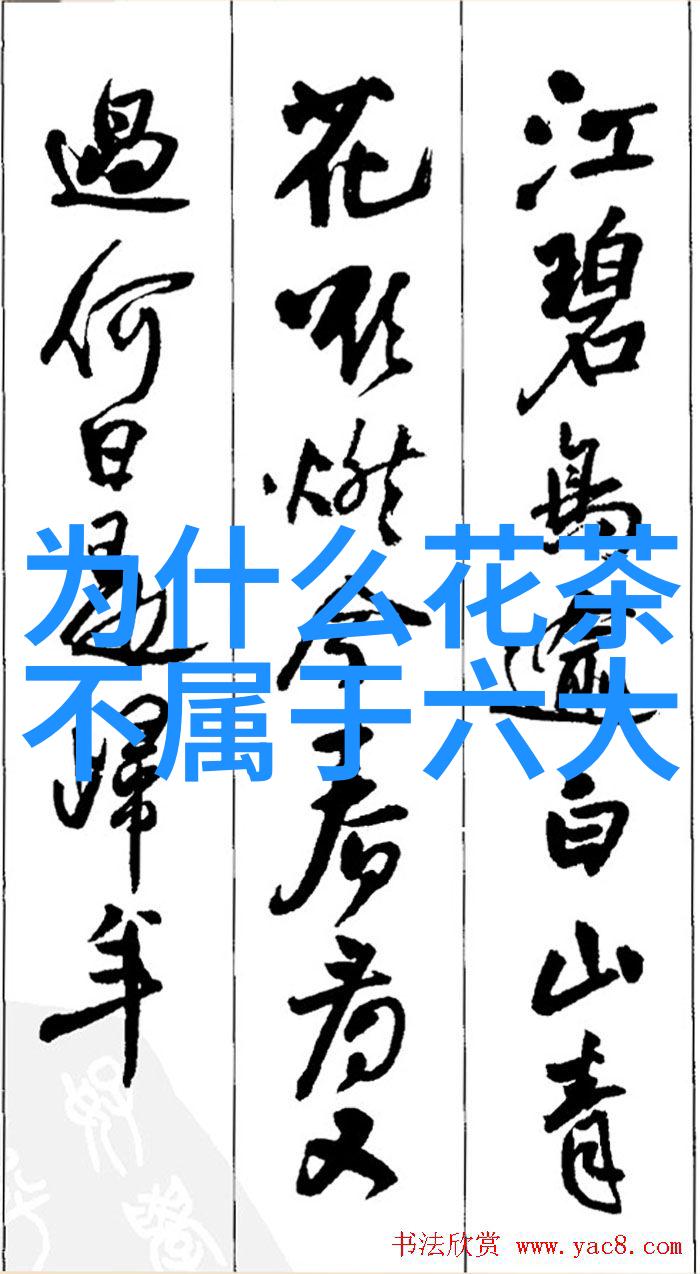 江碧鳥逾白山青
花欲燃今春看又
過何日是歸年
为什么花茶
不属于六大
书法欣赏 www.yac8.com